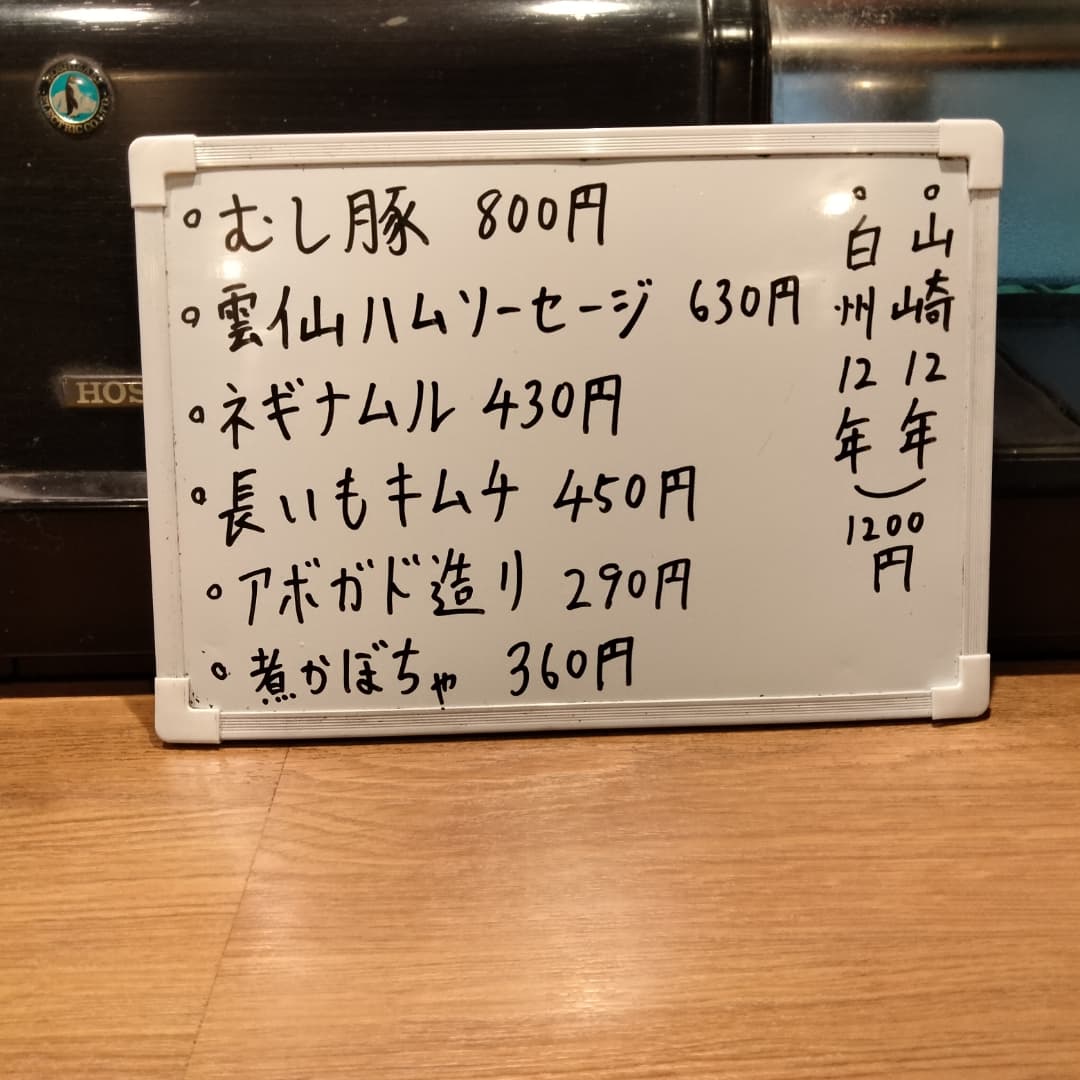 むし豚 800円
雲仙ハムソーセージ 630円
ネギナムル 430円
長いもキムチ 450円
アボガド造り 290円
煮かぼちゃ 360円
山崎12年
白州12年
1200円
HOS
ELECTRIC CO.LTD